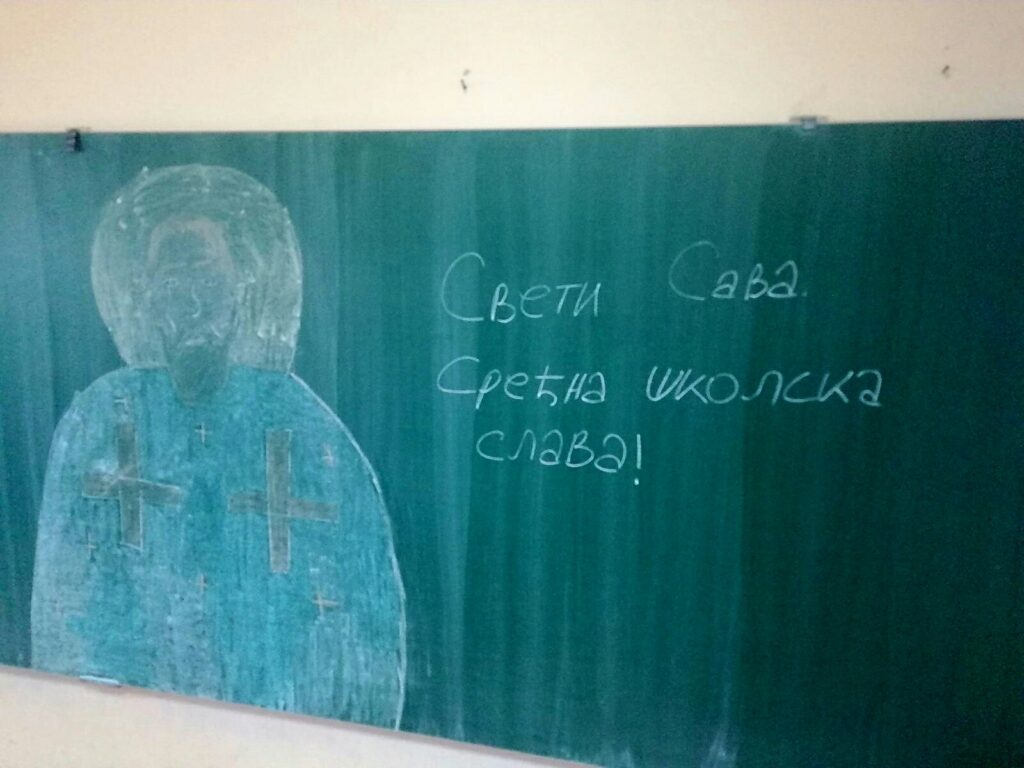 Свети Сава.
Срећна школска
слава!